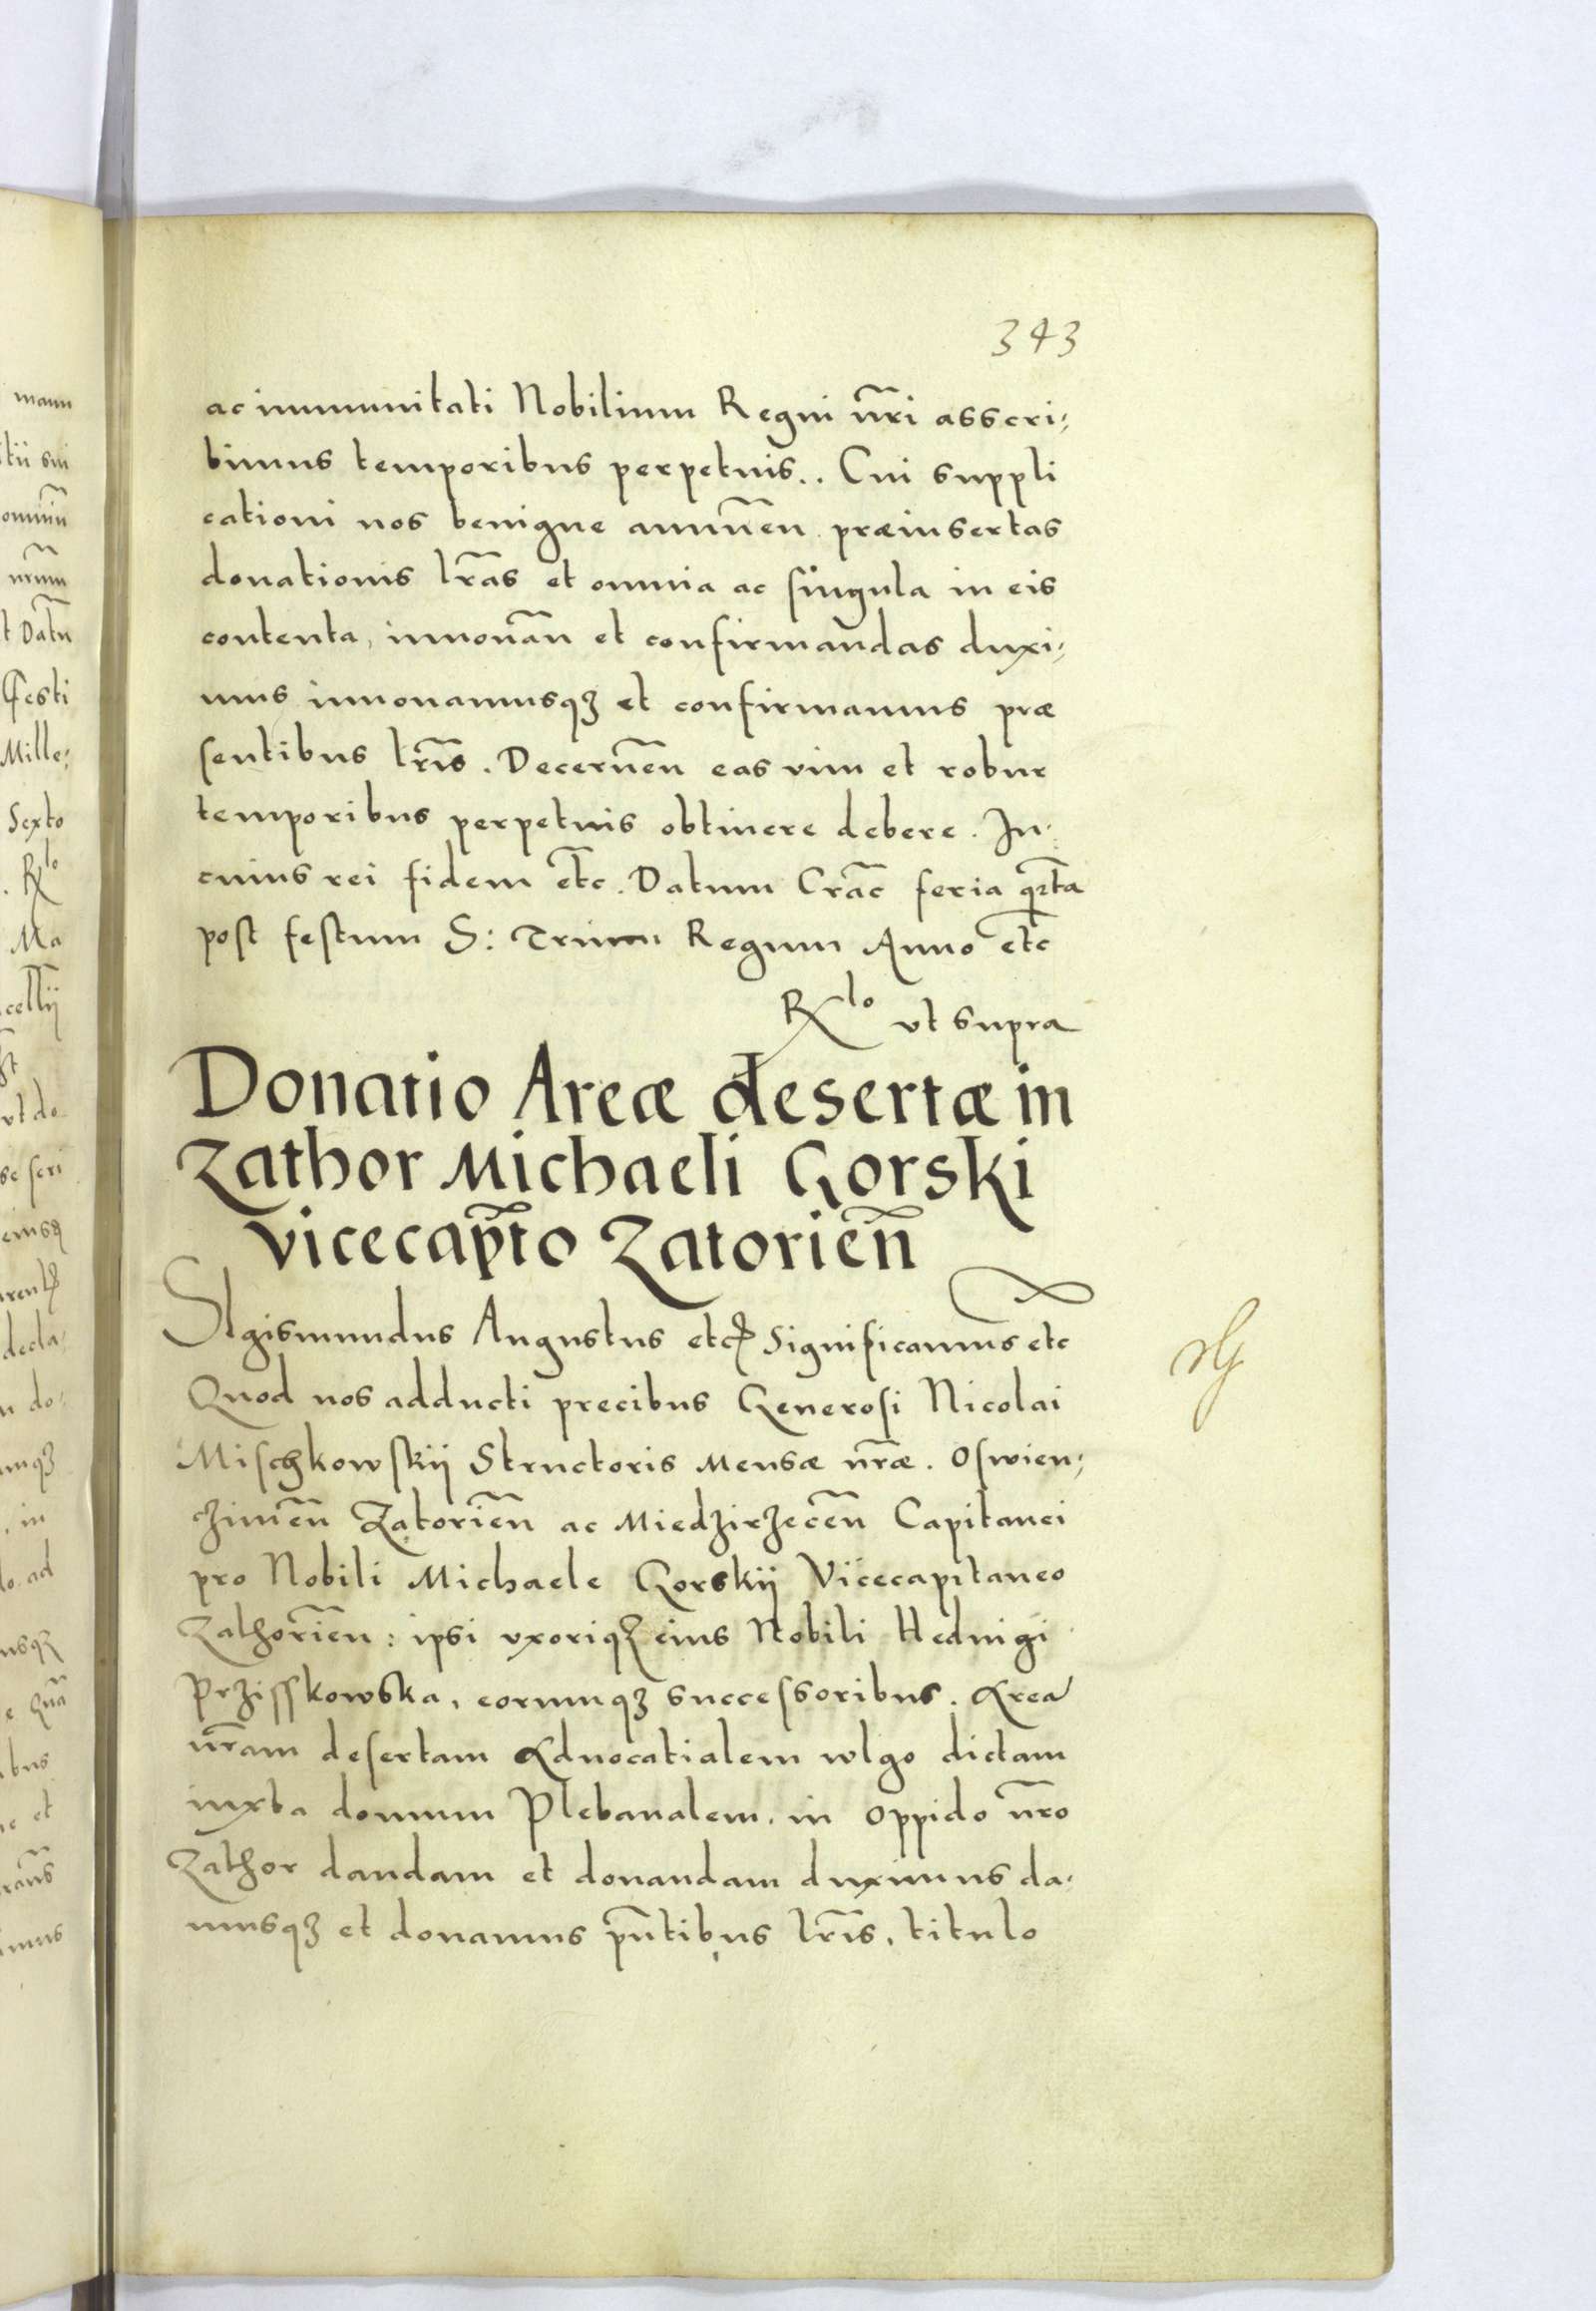 343
ac immunitati Nobilium Regni nr̃i asscri-
bimus temporibus perpetuis.. Cui suppli
cationi nos benigne annuẽn præinsertas
donationis lr̃as et omnia ac singula in eis
contenta, innouãn et confirmandas duxi-
mus innouamusqꝫ et confirmamus præ
sentibus lr̃is. Decernẽn eas vim et robur
temporibus perpetuis obtinere debere. In-
cuius rei fidem etc̃. Datum Crac̃ feria qr̃ta
post festum S: Trium Regum Anno etc̃
Rlo vt supra
Donatio Areæ desertæ in
Zathor Michaeli Gorski
vicecapto Zatorien̄
SIgismundus Augustus etc Significamus etc
Quod nos adducti precibus Generosi Nicolai
Mischkowskij Structoris Mensæ nr̃æ. Oswien-
zimẽn Zatoriẽn ac Miedzirzecẽn Capitanei
pro Nobili Michaele Gorskij Vicecapitaneo
Zathoriẽn: ipsi vxoriqꝫ eius Nobili Heduigi
Przisskowska, eorumqꝫ successoribus. Area
nr̃am desertam Aduocatialem wlgo dictam
iuxta domum Plebanalem, in oppido nr̃o
Zathor dandam et donandam duximus da-
musqꝫ et donamus pñtibus lr̃is, titulo
mann
itii sui
omniũ
t Datũ
festi
Mille-
Sexto
Rlo
Ma
cellij
vt do
se scri
decla-
n do-
in
lo ad
bus
et